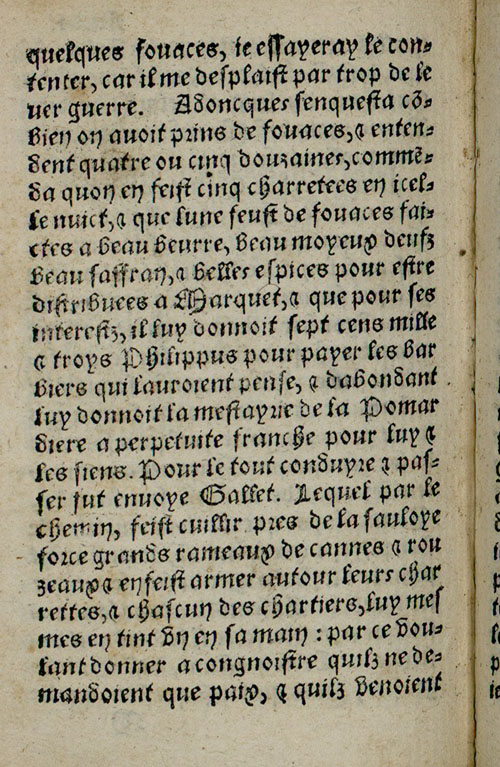 quelques fouaces, ie essayeray le con-
tenter, car il me desplaist par trop de le
uer guerre. Adoncques senquesta cõ-
bien on auoit prins de fouaces, ⁊ enten-
dent quatre ou cinq douzaines, commẽ-
da quon en feist cinq charretees en icel-
le nuict, ⁊ que lune feust de fouaces fai-
ctes a beau beurre, beau moyeux deufz
beau saffran, ⁊ belles espices pour estre
distribuees a Marquet, ⁊ que pour ses
interestz, il luy donnoit sept cens mille
⁊ troys Philippus pour payer les bar
biers qui lauroient pense, ⁊ dabondant
luy donnoit la mestayrie de la Pomar
diere a perpetuite franche pour luy ⁊
les siens. Pour le tout conduyre ⁊ pas-
ser fut enuoye Gallet. Lequel par le
chemin, feist cuillir pres de la sauloye
force grands rameaux de cannes ⁊ rou
zeaux ⁊ en feist armer autour leurs char
rettes, ⁊ chascun des chartiers, luy mes
mes en tint vn en sa main : par ce vou-
lant donner a congnoistre quilz ne de-
mandoient que paix, ⁊ quilz venoient